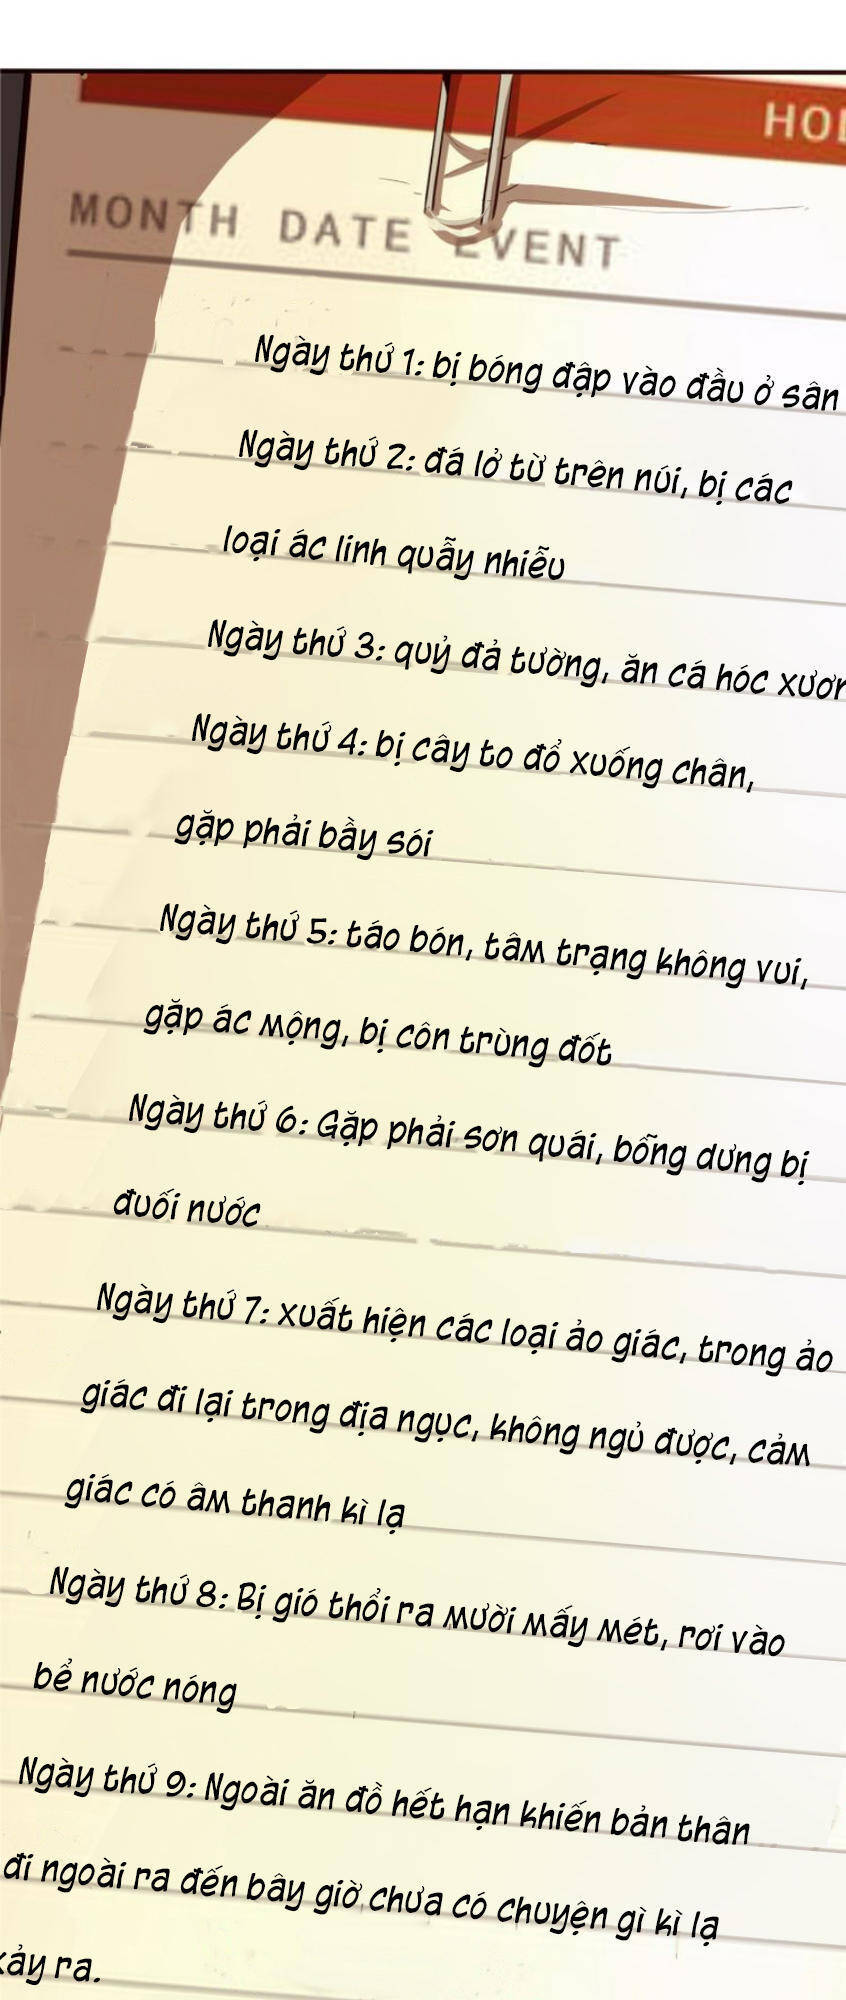 HO
MONTH DATE EVENT
Ngày thứ 1: bị bóng đập vào đầu ở sân
Ngày thứ 2: đá lở từ trên núi, bị các
loại ác linh quẫy nhiễu
Ngày thứ 3: quỷ đả tường, ăn cá hóc xươn
Ngày thứ 4: bị cây to đổ xuống chân,
gặp phải bầy sói
Ngày thứ 5: táo bón, tâm trạng không vui,
gặp ác mộng, bị côn trùng đốt
Ngày thứ 6: Gặp phải sơn quái, bỗng dưng bị
đuối nước
Ngày thứ 7: xuất hiện các loại ảo giác, trong ảo
giác đi lại trong địa ngục, không ngủ được, cảm
giác có âm thanh kì lạ
Ngày thứ 8: Bị gió thổi ra mười mấy mét, rơi vào
bể nước nóng
Ngày thứ 9: Ngoài ăn đồ hết hạn khiến bản thân
đi ngoài ra đến bây giờ chưa có chuyện gì kì lạ
xảy ra.